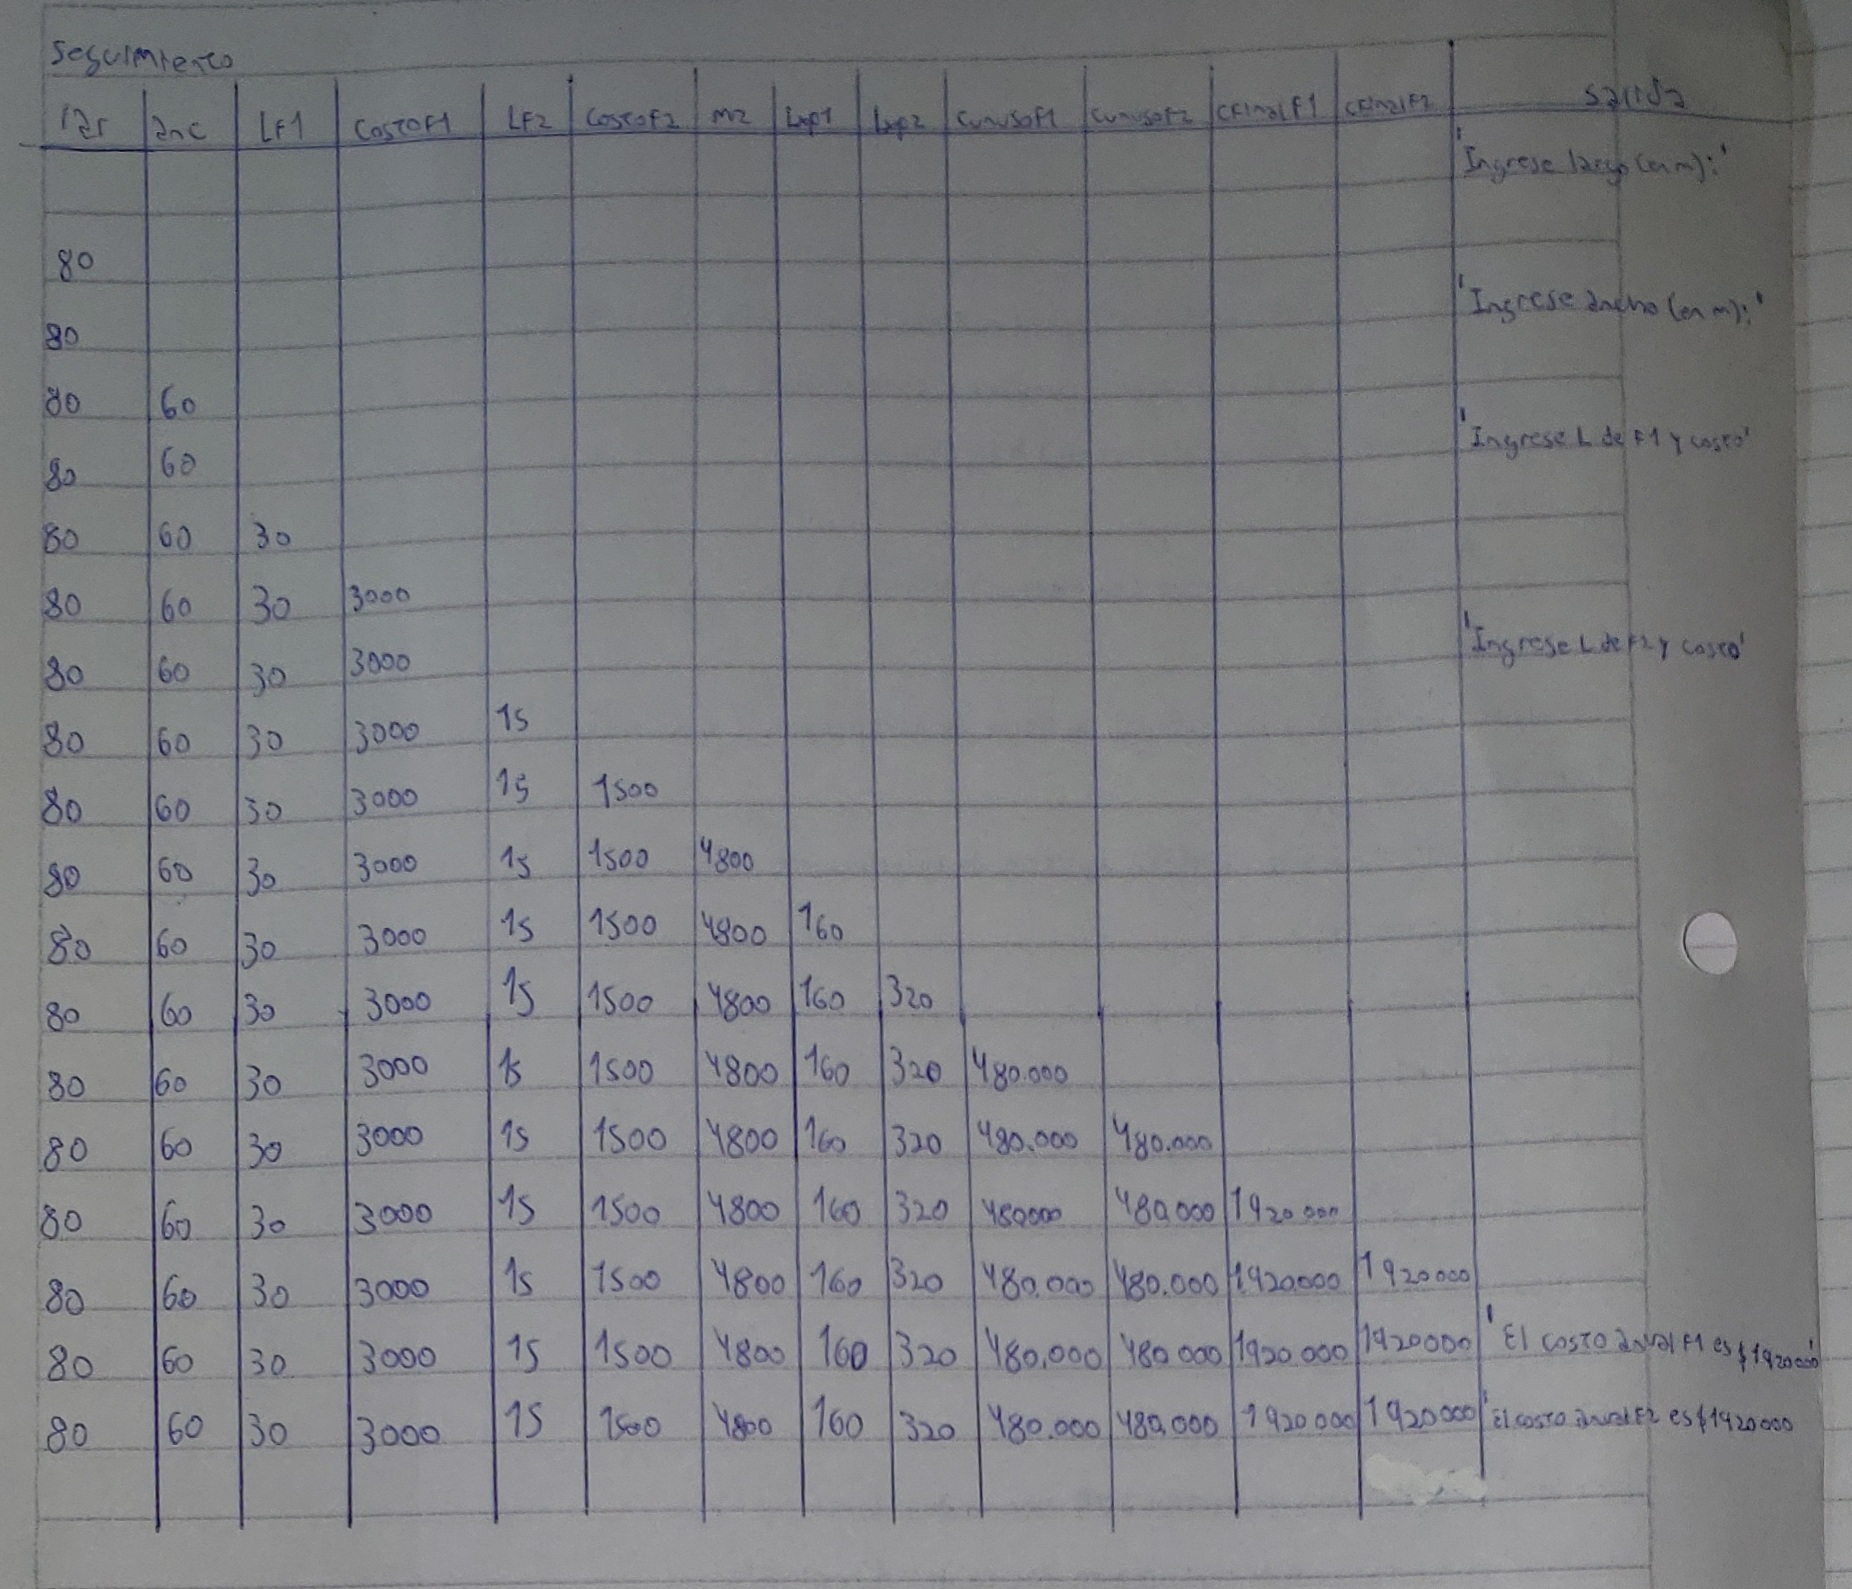 Seguimiento
lar anc LF1 CostoF1 LF2 CostoF2 m2 Lxp1 Lxp2 CunusoF1 CunusoF2 CFinalF1 CFinalF2 Salida
'Ingrese largo (en m):'
80
80 'Ingrese ancho (en m):'
80 60
80 60 'Ingrese L de F1 y costo'
80 60 30
80 60 30 3000
80 60 30 3000 'Ingrese L de F2 y costo'
80 60 30 3000 15
80 60 30 3000 15 1500
80 60 30 3000 15 1500 4800
80 60 30 3000 15 1500 4800 160
80 60 30 3000 15 1500 4800 160 320
80 60 30 3000 15 1500 4800 160 320 480.000
80 60 30 3000 15 1500 4800 160 320 480.000 480.000
80 60 30 3000 15 1500 4800 160 320 480000 480.000 1920.000
80 60 30 3000 15 1500 4800 160 320 480.000 480.000 1920.000 1920000
80 60 30 3000 15 1500 4800 160 320 480.000 480.000 1920.000 1920000 'El costo anual F1 es $1920000'
80 60 30 3000 15 1500 4800 160 320 480.000 480.000 1920000 1920000 'El costo anual F2 es $1920000